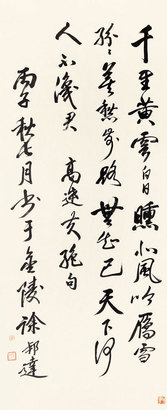 千里黃雲白日曛北風吹鴈雪
紛紛莫愁前路無知己天下
人不識君 高達夫絕句
丙子秋七月書于金陵徐邦達